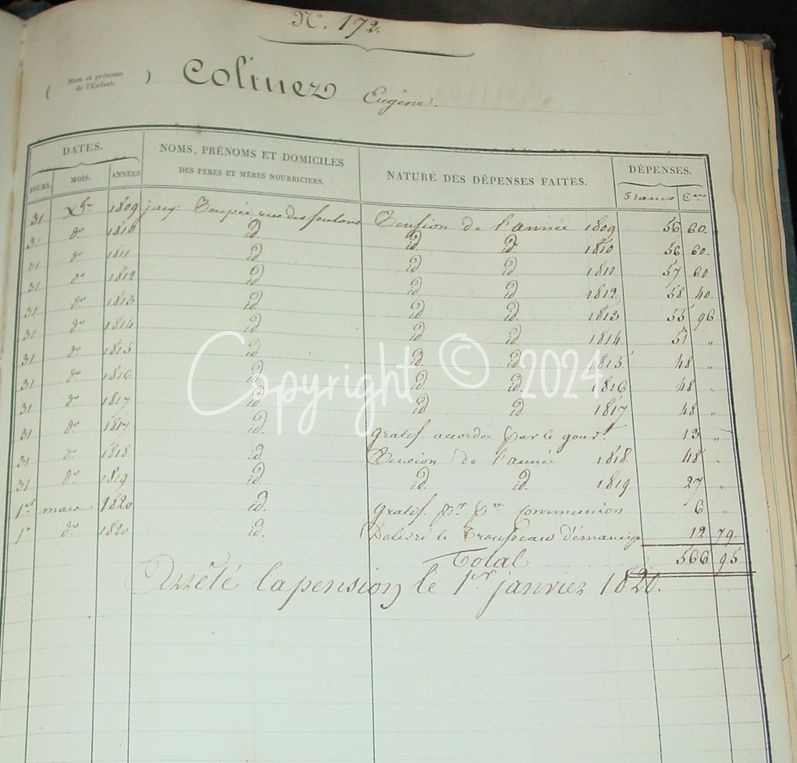 N°. 172.
( Nom et prénoms de l'Enfant. ) Colinez Eugène.
DATES. NOMS, PRÉNOMS ET DOMICILES DES PÈRES ET MÈRES NOURRICIERS. NATURE DES DÉPENSES FAITES. DÉPENSES.
JOURS. MOIS. ANNÉES Francs C.es
31 Xbre 1809 jacq. Toupée rue des foulons Pension de l'année 1809 56 60.
31 do 1810 id id id 1810 56 60.
31 do 1811 id id id 1811 57 60
31 do 1812 id id id 1812 58 40.
31 do 1813 id id id 1813 55 96
31 do 1814 id id id 1814 51 "
31 do 1815 id id id 1815 48 "
31 do 1816 id id id 1816 48 "
31 do 1817 id id id 1817 48 "
31 do 1817 id gratif. accordée par le gouvt 13 "
31 do 1818 id Pension de l'année 1818. 48 "
31 do 1819 id id id 1819 27 "
1er mars 1820 id. gratif. pr pre communion 6 "
1er do 1820 id. Délivré le Trousseau d'émancip 12 79
Total 566 95
Arrêté la pension le 1er janvier 1820.
Copyright © 2024